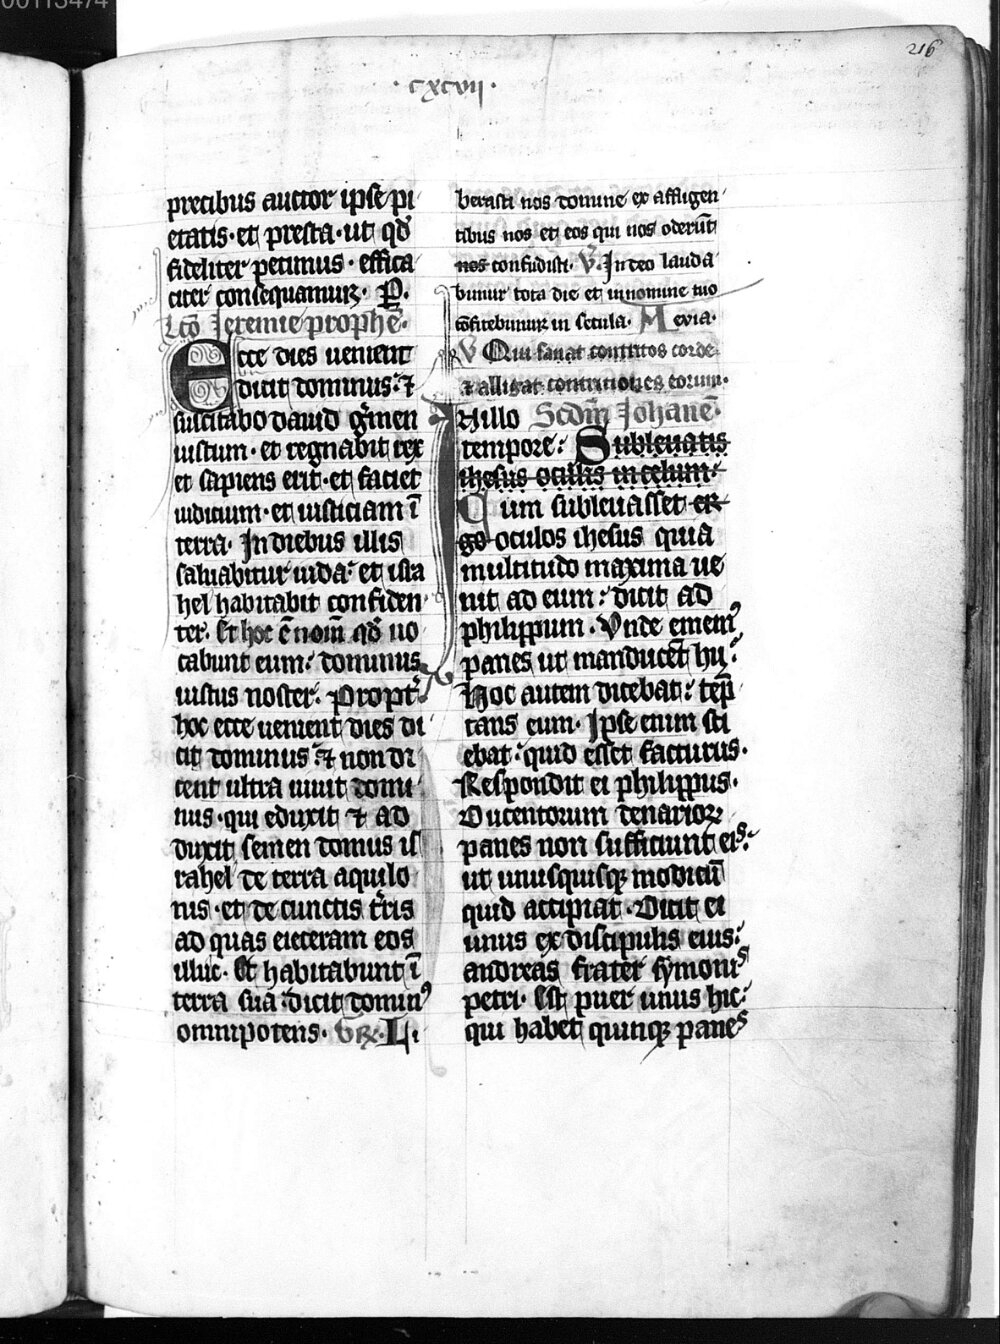 00113474
216
· cxcvii ·
precibus auctor ipse pi
etatis · et presta · ut qd̄
fideliter petimus · effica
citer consequamur · P.
Lcō Jeremie prophē ·
Ecce dies uenient
dicit dominus : ⁊
suscitabo dauid gͥmen
iustum · et regnabit rex
et sapiens erit · et faciet
iudicium · et iusticiam ī
terra · In diebus illis
saluabitur iuda : et isra
hel habitabit confiden
ter · Et hoc ē nom̄ qd̄ uo
cabunt eum : dominus
iustus noster · Propt̾
hoc ecce uenient dies di
cit dominus : ⁊ non di
cent ultra uiuit domi
nus · qui eduxit ⁊ ad
duxit semen domus is
rahel de terra aquilo
nis · et de cunctis tr̄is
ad quas eieceram eos
illuc · Et habitabunt ī
terra sua dicit domin⁹
omnipotens · Gr̄ · Li
berasti nos domine ex affligen
tibus nos et eos qui nos oderūt
nos confudisti · V. In deo lauda
bimur tota die et in nomine tuo
cōfitebimur in secula · Alleuia ·
V Qui sanat contritos corde
⁊ alligat contritiones eorum ·
In illo Scdm̄ Johanē ·
tempore : Subleuatis
ihesus oculis in celum :
Cum subleuasset er
go oculos ihesus quia
multitudo maxima ue
nit ad eum : dicit ad
philippum · Vnde emem⁹
panes ut manducēt hij :
Hoc autem dicebat : tēp
tans eum · Ipse enim sci
ebat : quid esset facturus ·
Respondit ei philippus ·
Ducentorum denarioꝝ
panes non sufficiunt eis :
ut unusquisqꝫ modicū
quid accipiat · Dicit ei
unus ex discipulis eius :
andreas frater symonis
petri · Est puer unus hic :
qui habet quinqꝫ panes